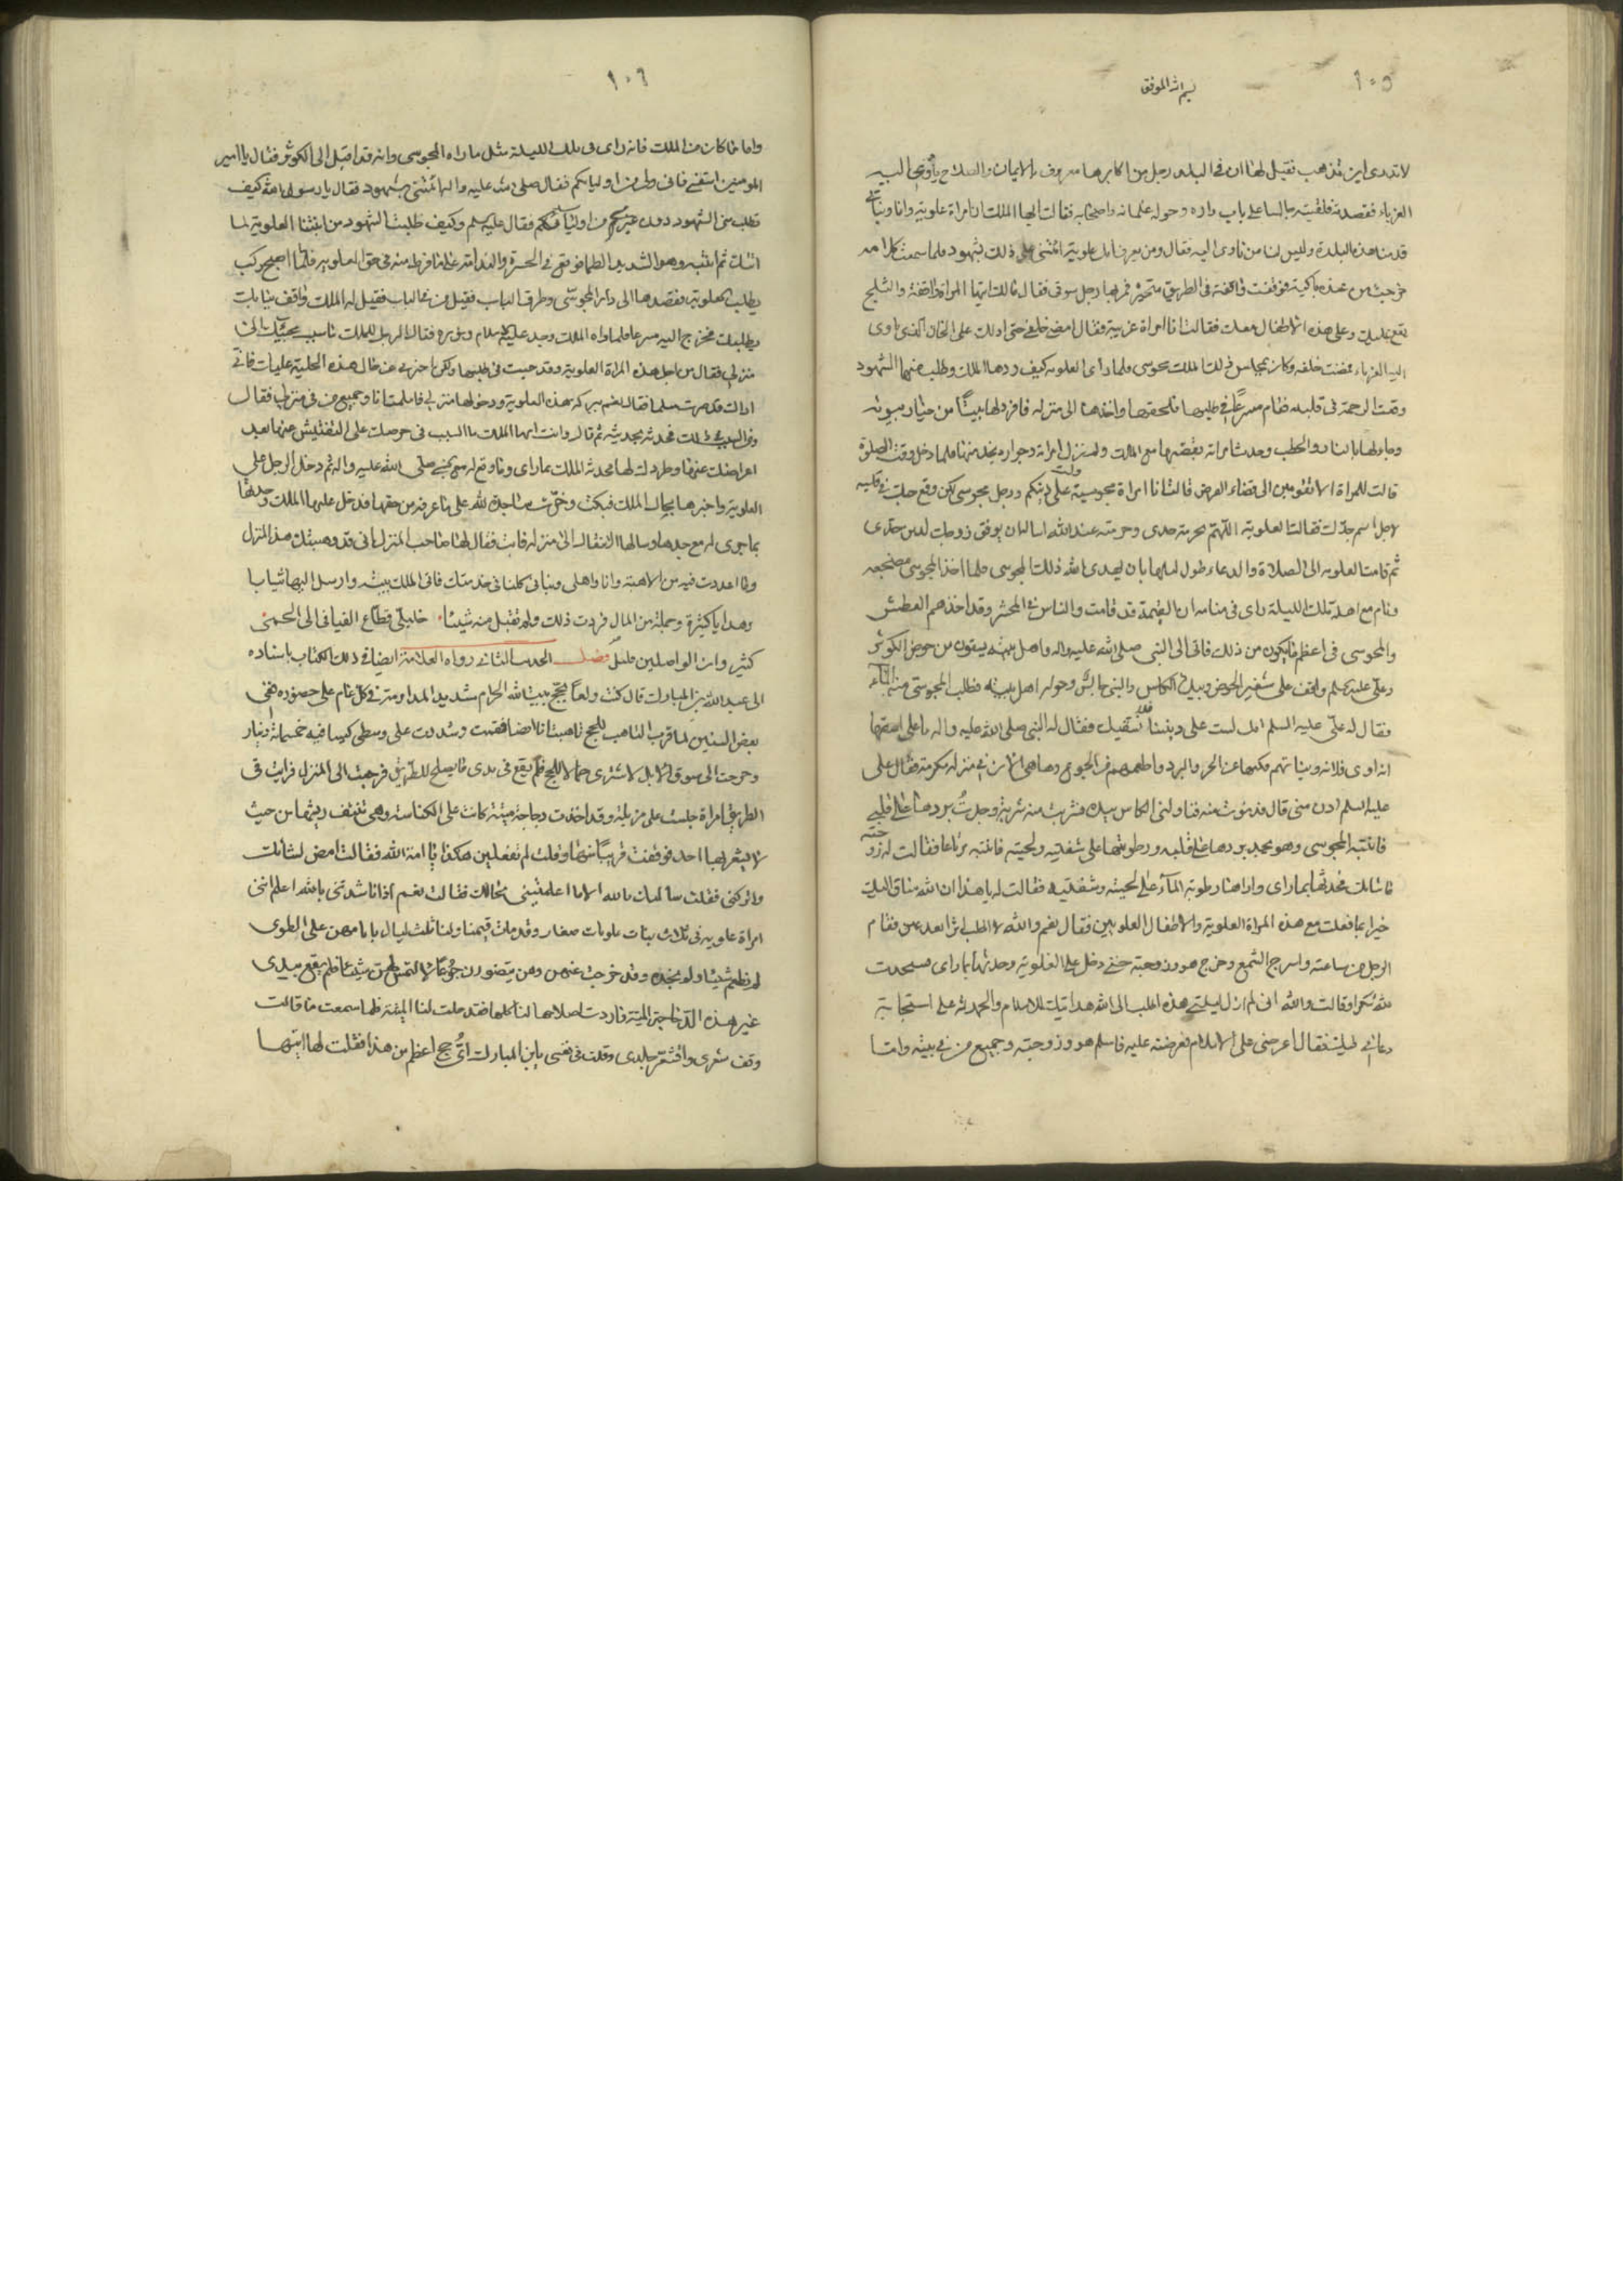 ١٠٥
بسم الله الموفق
لا تدرى اين تذهب فقيل لها ان فى البلد رجل من اكابرها معروف بالايمان والصلاح يأوى اليه
الغرباء فقصدته فلقيته جالسا على باب داره وحوله غلمانه واصحابه فقالت ايها الملك انا امراة علوية وانا وبناتى
قدمنا هذه البلدة وليس لنا من ناوى اليه فقال ومن يعرف انك علوية ائتنى على ذلك بشهود فلما سمعت كلامه
خرجت من عنده باكية فوقفت واقفة فى الطريق متحيرة فمر بها رجل سوقى فقال مالك ايتها المراة واقفة والثلج
يقع عليك وعلى هذه الاطفال معك فقالت انا امراة غريبة فقال امضى خلفى حتى ادلك على الخان الذى ياوى
اليه الغرباء فمضت خلفه وكان بمجلس ذلك الملك مجوسى فلما راى العلويه كيف ردها الملك وطلب منها الشهود
وقعت الرحمة فى قلبه فقام مسرعًا فى طلبها فلحقها واخذها الى منزله فافرد لها بيتًا من خيار بيوته
وجاء لها بالنار والحطب وحدث امراته بقصتها مع الملك ولم تزل امراته وجواره يخدمنها فلما دخل وقت الصلوة
قالت للمراة الا تقومين الى قضاء الفرض قالت انا امراة مجوسية ولست على دينكم ورجل مجوسى لكن وقع حبك فى قلبه
لاجل اسم جدك فقالت العلويه اللهم بحرمة جدى وحرمته عندك اسالك ان توفق زوجك لدين جدى
ثم قامت العلويه الى الصلاة والدعاء طول ليلها بان يهدى الله ذلك المجوسى فلما اخذ المجوسى مضجعه
ونام مع اهله تلك الليلة راى فى منامه ان القيمة قد قامت والناس فى المحشر وقد اخذهم العطش
والمجوسى فى اعظم ما يكون من ذلك فاتى الى النبى صلى الله عليه واله واهل بيته يسقون من حوض الكوثر
وعلى عليه السلم واقف على شفير الحوض وبيده الكاس والنبى جالس وحوله اهل بيته فطلب المجوسى منه الماء
فقال له على عليه السلم انك لست على ديننا فنسقيك فقال له النبى صلى الله عليه واله يا على اسقها
انه اوى فلانه وبناتها فكنها عن الحر والبرد واطعمهم من الجوع وها هى الان فى منزله مكرمة فقال على
عليه السلم ادن منى قال فدنوت منه فناولنى الكاس بيده فشربت منه شربة وجدتُ بردها على قلبى
فانتبه المجوسى وهو يجد بردها على قلبه ورطوبتها على شفتيه ولحيته فانتبه مرتاعا فقالت له زوجته
ما شانك فحدثها بما راى واراها رطوبة الماء على لحيته وشفتيه فقالت له يا هذا ان الله ساق اليك
خيرا بما فعلت مع هذه المراة العلوية والاطفال العلويين فقال نعم والله لا اطلب اثرا بعد عين فقام
الرجل من ساعته واسرج الشمع وخرج هو وزوجته حتى دخل على العلوية وحدثها بما راى فسجدت
لله شكرا وقالت والله انى لم ازل ليلتى هذه اطلب الى الله هدايتك للاسلام والحمد لله على استجابة
دعائى فيك فقال اعرضى على الاسلام فعرضته عليه فاسلم هو وزوجته وجميع من فى بيته واما
١٠٦
واما ما كان من الملك فانه راى فى تلك الليلة مثل ما راه المجوسى وانه قد اقبل الى الكوثر فقال يا امير
المومنين اسقنى فانى ولى من اوليائكم فقال صلى الله عليه واله ائتنى بشهود فقال يا رسول الله كيف
تطلب منى الشهود دون غيرى من اوليائكم فقال عليه السلم وكيف طلبت الشهود من ابنتنا العلوية لما
اتتك ثم انتبه وهو الشديد الظما فوقع فى الحسرة والندامة على ما فرط منه فى حق العلويه فلما اصبح ركب
يطلب العلوية فقصدها الى دار المجوسى وطرق الباب فقيل من بالباب فقيل له الملك واقف ببابك
يطلبك فخرج اليه مسرعا فلما راه الملك وجد عليه الاسلام ونوره فقال الرجل للملك ما سبب مجيئك الى
منزلى فقال من اجل هذه المراة العلوية وقد جيت فى طلبها ولكن اخبرنى عن حال هذه الحلية عليك فانى
اراك قد صرت مسلما فقال نعم ببركة هذه العلوية ودخولها منزلى فاسلمت انا وجميع من فى منزلى فقال
وما السبب فى ذلك فحدثه بحديثه ثم قال وانت ايها الملك ما السبب فى حرصك على التفتيش عنها بعد
اعراضك عنها وطردك لها فحدثه الملك بما راى وما وقع له مع النبى صلى الله عليه واله ثم دخل الرجل على
العلوية واخبرها بحال الملك فبكت وخرت ساجدة لله على ما عرفه من حقها فدخل عليها الملك وحدثها
بما جرى له مع جدها وسالها الانتقال الى منزله فابت فقال لها صاحب المنزل انى قد وهبتك هذا المنزل
وما اعددت فيه من الاهبة وانا واهلى وبناتى كلنا فى خدمتك فاتى الملك بيته وارسل اليها ثيابا
وهدايا كثيرة وجملة من المال فردت ذلك ولم تقبل منه شيئا خليلى قطاع الفيافى الى الحمى
كثير وان الواصلين قليل فصل الحديث الثانى رواه العلامة ايضا فى ذلك الكتاب باسناده
الى عبد الله بن المبارك قال كنت ولعًا بحج بيت الله الحرام شديد المداومة فى كل عام على حضوره ففى
بعض السنين لما قرب التاهب للحج تاهبت انا ايضا فقمت وشددت على وسطى كيسا فيه خمسمائة دينار
وخرجت الى سوق الابل لاشترى جمالا للحج فلم يقع فى يدى ما يصلح للطريق فرجعت الى المنزل فرايت فى
الطريق امراة جلست على مزبلة وقد اخذت دجاجة ميتة كانت على الكناسة وهى تنتف ريشها من حيث
لا يشعر بها احد فوقفت قريبًا منها وقلت لم تفعلين هكذا يا امة الله فقالت امض لشانك
واتركنى فقلت سالتك بالله الا ما اعلمتينى بحالك فقالت نعم اذ ناشدتنى بالله اعلم اننى
امراة علويه لى ثلاث بنات علويات صغار وقد مات قيمنا ولنا ثلث ليال بايامهن على الطوى
لم نطعم شيئا ولم نجده وقد خرجت عنهن وهن يتضورن جوعًا لالتمس لهن شيئا فلم يقع بيدى
غير هذه الدجاجة الميتة فاردت اصلاحها لناكلها فقد حلت لنا الميتة فلما سمعت ما قالت
وقف شعرى واقشعر جلدى وقلت فى نفسى يابن المبارك اىُّ حج اعظم من هذا فقلت لها ايتها